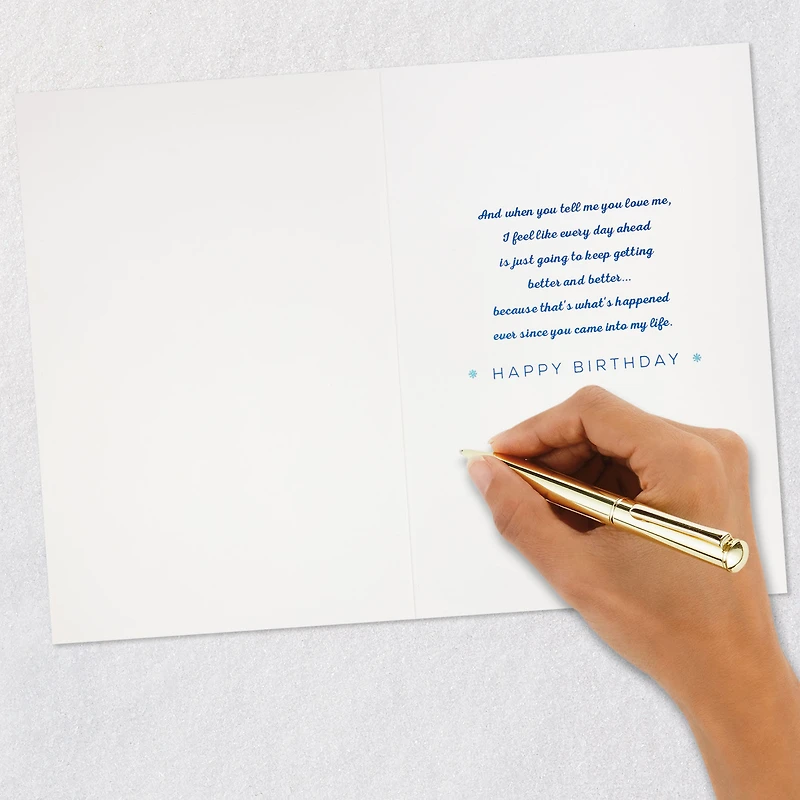 And when you tell me you love me,
I feel like every day ahead
is just going to keep getting
better and better...
because that's what's happened
ever since you came into my life.
HAPPY BIRTHDAY